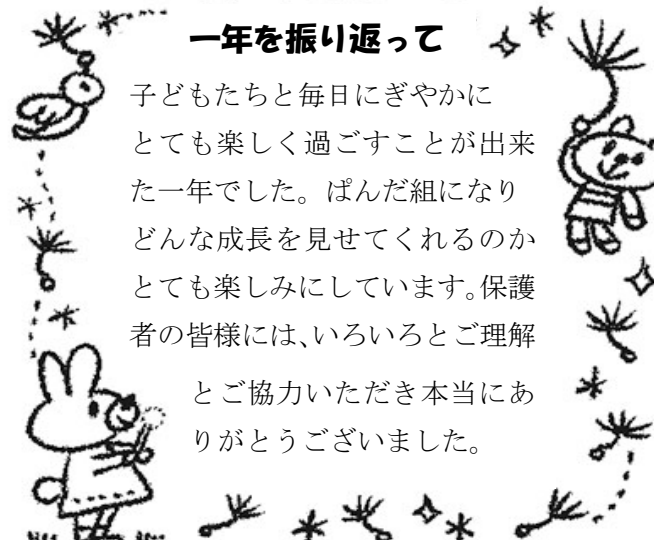 一年を振り返って
子どもたちと毎日にぎやかに
とても楽しく過ごすことが出来
た一年でした。ぱんだ組になり
どんな成長を見せてくれるのか
とても楽しみにしています。保護
者の皆様には、いろいろとご理解
とご協力いただき本当にあ
りがとうございました。